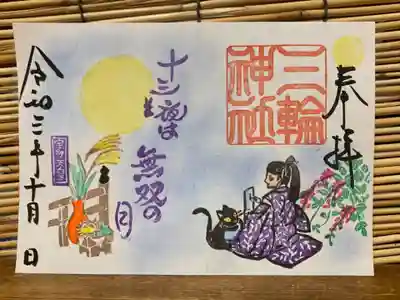 奉拝
三輪
神社
十三夜は
無双の月
令和三年十月 日